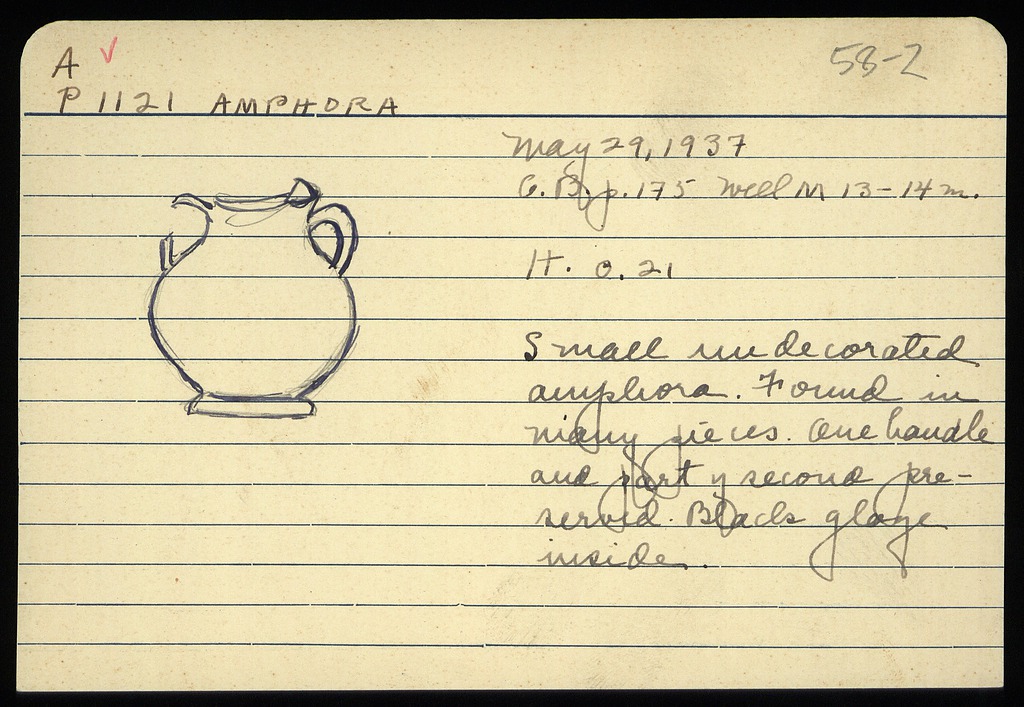 A ✓
58-2
P 1121 AMPHORA
May 29, 1937
C.B. p. 175 Well M 13-14 m.
H. 0.21
Small undecorated
amphora. Found in
many pieces. One handle
and part of second pre-
served. Black glaze
inside.